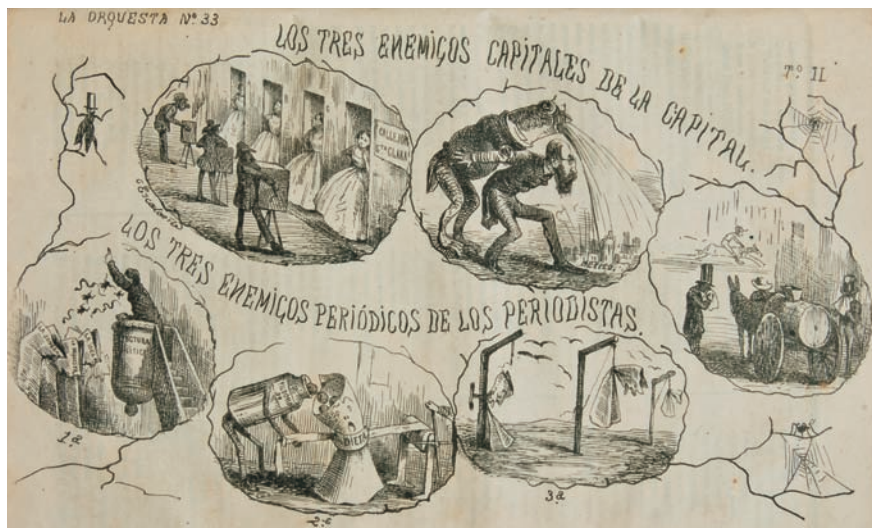 LA ORQUESTA Nº 33
Tº II
LOS TRES ENEMIGOS CAPITALES DE LA CAPITAL.
CALLEJON
STA CLARA
Escalante
MEXICO.
LOS TRES ENEMIGOS PERIÓDICOS DE LOS PERIODISTAS.
DIETA
1ª
2ª
3ª